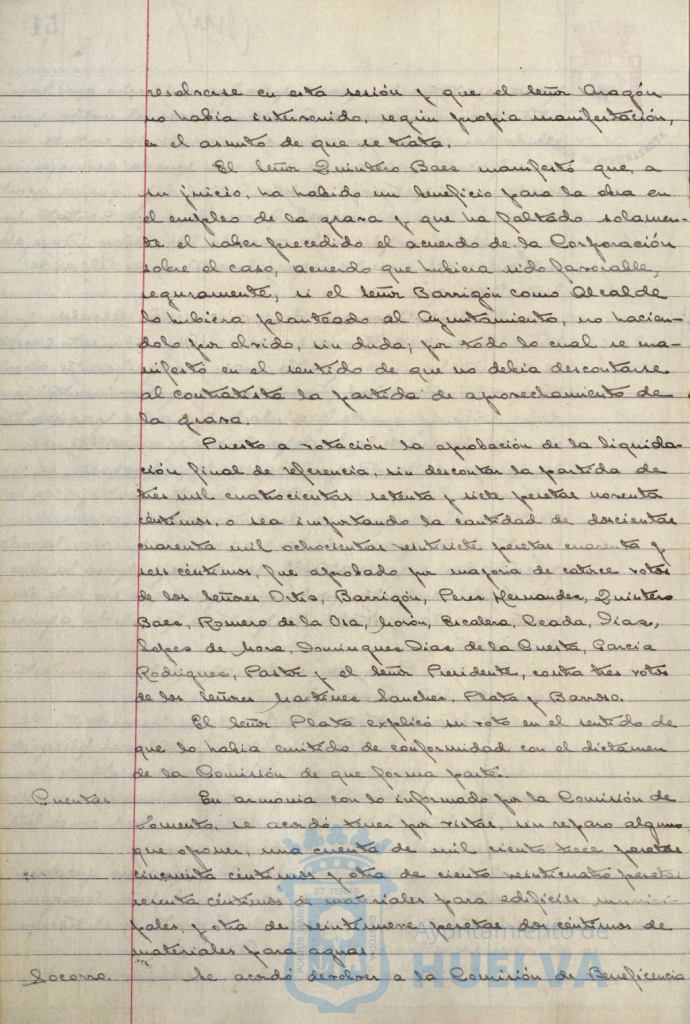 resolverse en esta sesión y que el Señor Aragón
no había intervenido, según propia manifestación,
en el asunto de que se trata.
El Señor Quintero Baez manifestó que, a
su juicio, ha habido un beneficio para la obra en
el empleo de la grava y que ha faltado solamen-
te el haber precedido el acuerdo de la Corporación
sobre el caso, acuerdo que hubiera sido favorable,
seguramente, si el Señor Barrigón como Alcalde
lo hubiera planteado al Ayuntamiento, no hacién-
dolo por olvido, sin duda; por todo lo cual se ma-
nifestó en el sentido de que no debía descontarse
al contratista la partida de aprovechamiento de
la grava.
Puesto a votación la aprobación de la liquida-
ción final de referencia, sin descontar la partida de
tres mil cuatrocientas setenta y siete pesetas noventa
céntimos, o sea importando la cantidad de doscientas
cuarenta mil ochocientas veintisiete pesetas cuarenta y
seis céntimos, fue aprobado por mayoría de catorce votos
de los Señores Ortiz, Barrigón, Perez Hernandez, Quintero
Baez, Romero de la Osa, Morón, Escalera, Ceada, Diaz,
Lopez de Mora, Dominguez Diaz de la Cuesta, García
Rodriguez, Pastor y el Señor Presidente, contra tres votos
de los Señores Martinez Sanchez, Plata y Barroso.
El Señor Plata explicó su voto en el sentido de
que lo había emitido de conformidad con el dictamen
de la Comisión de que forma parte.
Cuentas. En armonía con lo informado por la Comisión de
Fomento, se acordó tener por vistas, sin reparo alguno
que oponer, una cuenta de mil ciento trece pesetas
cincuenta céntimos y otra de ciento veinticuatro pesetas
sesenta céntimos de materiales para edificios munici-
pales, y otra de veintinueve pesetas dos céntimos de
materiales para aguas.
Socorro. Se acordó devolver a la Comisión de Beneficencia
Ayuntamiento de
HUELVA